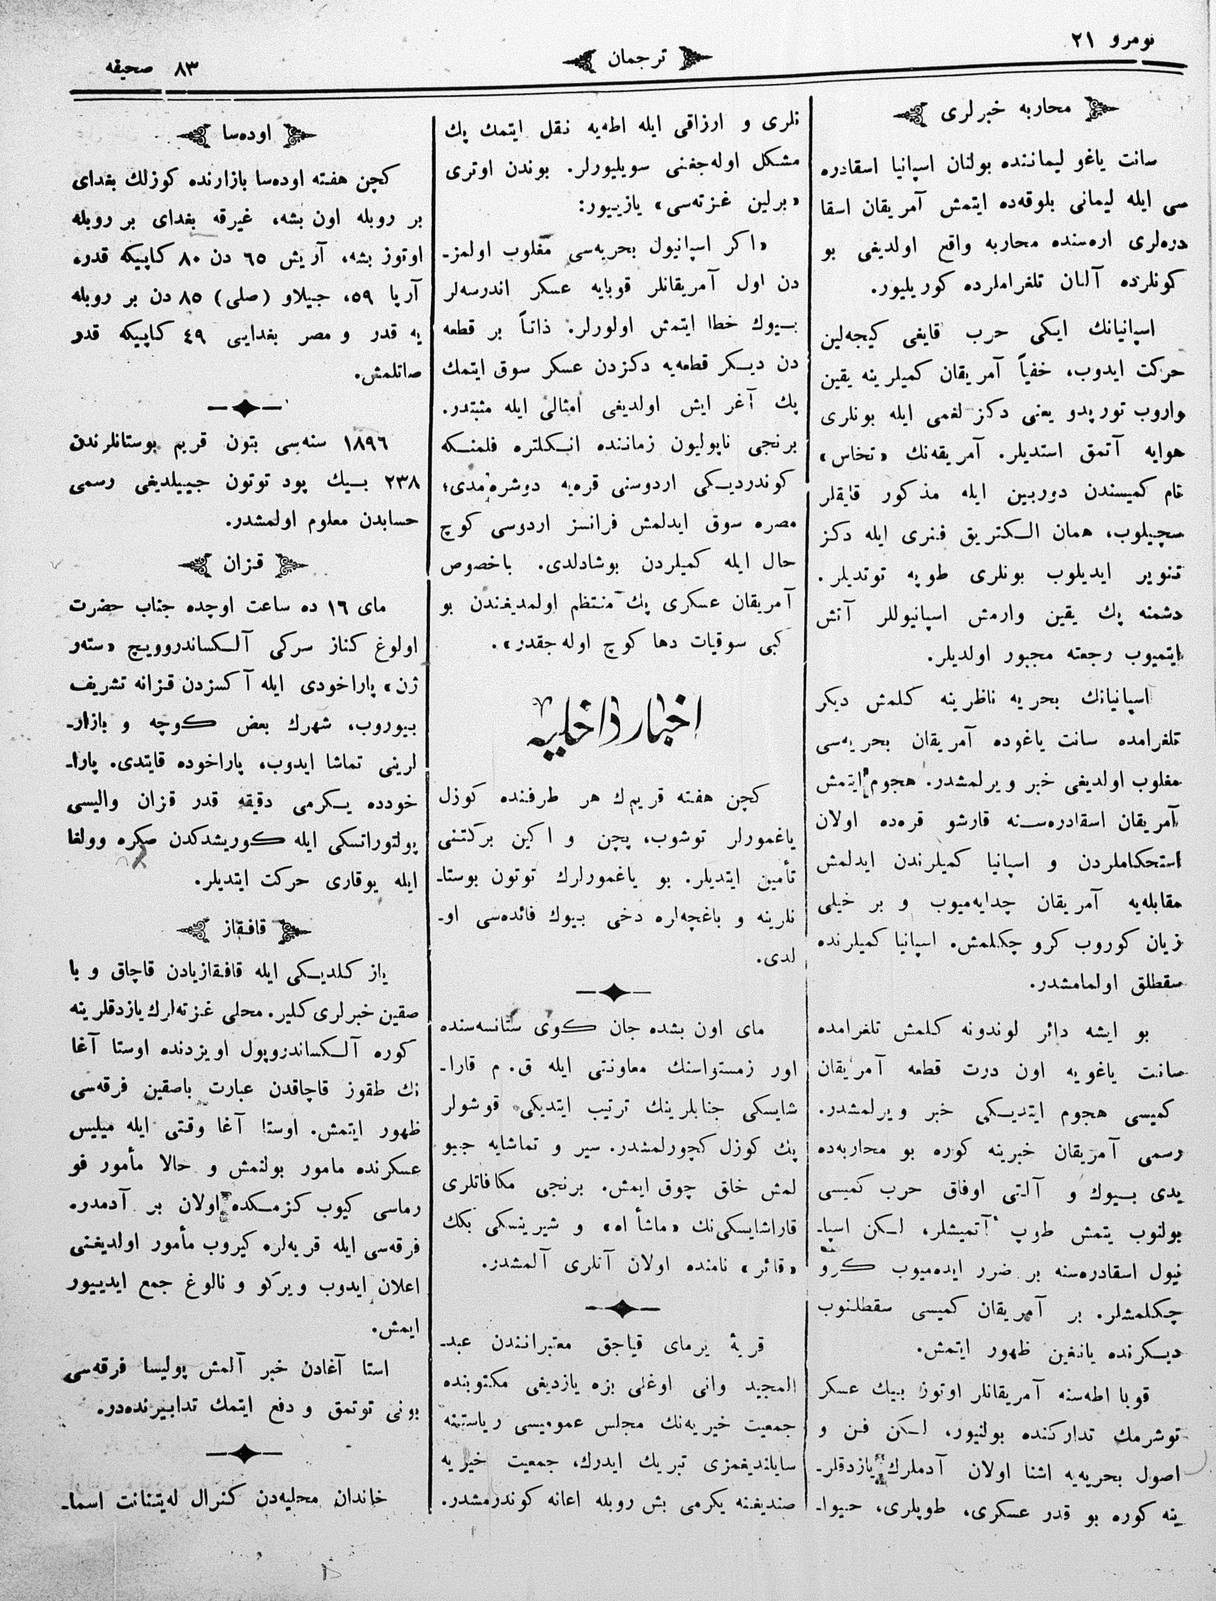 نومرو ٢١
ترجمان
٨٣ صحیفه
محاربه خبرلری
سانت یاغو لیماننده بولنان اسپانیا اسقادره
سی ایله لیمانی بلوقه‌ده ایتمش آمریقان اسقا
دره‌لری اره‌سنده محاربه واقع اولدیغی بو
کونلرده آلنان تلغرامارده کوریلیور.
اسپانیانك ایکی حرب قایغی کیجه‌لین
حرکت ایدوب، خفیاً آمریقان کمیلرینه یقین
واروب تورپدو یعنی دکز لغمی ایله بونلری
هوایه آتمق استدیلر. آمریقه‌نك «تخاس»
نام کمیسندن دوربین ایله مذکور قایقلر
سچیلوب، همان الـکتریق فنری ایله دکز
تنویر ایدیلوب بونلری طوپه توتدیلر.
دشمنه پك یقین وارمش اسپانیوللر آتش
ایتمیوب رجعته مجبور اولدیلر.
اسپانیانك بحریه ناظرینه کلمش دیکر
تلغرامده سانت یاغوده آمریقان بحریه‌سی
مغلوب اولدیغی خبر ویرلمشدر. هجوم ایتمش
آمریقان اسقادره‌سـنه قارشو قره‌ده اولان
استحکاملردن و اسپانیا کمیلرندن ایدلمش
مقابله‌یه آمریقان چدایه‌میوب و بر خیلی
زیان کوروب کرو چکلمش. اسپانیا کمیلرنده
سقطلق اولمامشدر.
بو ایشه دائر لوندونه کلمش تلغرامده
سانت یاغویه اون درت قطعه آمریقان
کمیسی هجوم ایتدیـکی خبر ویرلمشدر.
رسمی آمریقان خبرینه کوره بو محاربه‌ده
یدی بـیوك و آلتی اوفاق حرب کمیسی
بولنوب یتمش طوپ آتمیشلر، لـکن اسپا-
نیول اسقادره‌سنه بر ضرر ایده‌میوب کرو
چکلمشلر. بر آمریقان کمیسی سقطلنوب
دیـکرنده یانغین ظهور ایتمش.
قوبا اطه‌سنه آمریقانلر اوتوز بیك عسکر
توشرمك تدارکنده بولنیور، لـکن فن و
اصول بحریه‌یه اشنا اولان آدملرك یازدقلر-
ینه کوره بو قدر عسکری، طوپلری، حیوا-
نلری و ارزاقی ایله اطه‌یه نقل ایتمك پك
مشکل اوله‌جغنی سویلیورلر. بوندن اوتری
«برلین غزته‌سی» یازییور:
«اکر اسپانیول بحریه‌سی مغلوب اولمز-
دن اول آمریقانلر قوبایه عسکر اندرسه‌لر
بـیوك خطا ایتمش اولورلر. ذاتاً بر قطعه
دن دیـکر قطعه‌یه دکزدن عسکر سوق ایتمك
پك آغر ایش اولدیغی امثالی ایله مثبتدر.
برنجی ناپولیون زماننده انـکلتره فلمنـکه
کوندردیـکی اردوسنی قره‌یه دوشره‌مدی؛
مصره سوق ایدلمش فرانسز اردوسی کوچ
حال ایله کمیلردن بوشادلدی. باخصوص
آمریقان عسکری پك منتظم اولمدیغندن بو
کبی سوقیات دها کوچ اوله‌جقدر».
اخبار داخلیه
کچن هفته قریم‌ك هر طرفنده کوزل
یاغمورلر توشوب، پچن و اکین برکتنی
تأمین ایتدیلر. بو یاغمورلرك توتون بوستا-
نلرینه و باغچه‌لره دخی بیوك فائده‌سی او-
لدی.
مای اون بشده جان کوی ستانسه‌سنده
اور زمستواسنك معاونتی ایله ق. م قارا-
شایسکی جنابلرینك ترتیب ایتدیکی قوشولر
پك کوزل کچورلمشدر. سیر و تماشایه جیو
لمش خلق چوق ایمش. برنجی مکافاتلری
قاراشایسکی‌نك «ماشأاه» و شیرینسکی بکك
«قائر» نامنده اولان آتلری آلمشدر.
قریۀ یرمای قپاجق معتبرانندن عبد-
المجید وانی اوغلی بزه یازدیغی مکتوبنده
جمعیت خیریه‌نك مجلس عمومیسی ریاستینه
سایلندیغمزی تبریك ایدرك، جمعیت خیریه
صندیغنه یکرمی بش روبله اعانه کوندرمشدر.
اوده‌سا
کچن هفته اوده‌سا بازارنده کوزلك بغدای
بر روبله اون بشه، غیرقه بغدای بر روبله
اوتوز بشه، آریش ٦٥ دن ٨٠ کاپیکه قدر،
آرپا ٥٩، جیلاو (صلی) ٨٥ دن بر روبله
یه قدر و مصر بغدایی ٤٩ کاپیکه قدر
صاتلمش.
١٨٩٦ سنه‌سی بتون قریم بوستانلرندن
٢٣٨ بـیك پود توتون جییلدیغی رسمی
حسابدن معلوم اولمشدر.
قزان
مای ١٦ ده ساعت اوچده جناب حضرت
اولوغ کناز سرکی آلـکساندروویچ «سته‌ر
ژن» پاراخودی ایله آکسزدن قزانه تشریف
بیوروب، شهرك بعض کوچه و بازار-
لرینی تماشا ایدوب، پاراخوده قایتدی. پارا-
خودده یـکرمی دقیقه قدر قزان والیسی
پولتوراتسکی ایله کوریشدکدن صکره وولغا
ایله یوقاری حرکت ایتدیلر.
قافقاز
یاز کلدیـکی ایله قافقازیادن قاچاق و با
صقین خبرلری کلیر. محلی غزته‌لرك یازدقلرینه
کوره آلـکساندروپول اویزدنده اوستا آغا
نك طقوز قاچاقدن عبارت باصقین فرقه‌سی
ظهور ایتمش. اوستا آغا وقتی ایله میلیس
عسکرنده مامور بولنمش و حالا مأمور فو
رماسی کیوب کزمـکده اولان بر آدمدر.
فرقه‌سی ایله قریه‌لره کیروب مأمور اولدیغنی
اعلان ایدوب ویرکو و نالوغ جمع ایدییور
ایمش.
استا آغادن خبر آلمش پولیسا فرقه‌سی
بونی توتمق و دفع ایتمك تدابیرنده‌در.
خاندان محلیه‌دن کنرال له‌یتنانت اسما-